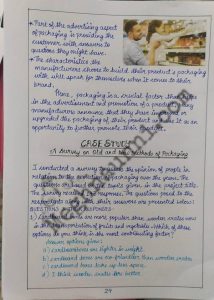 * Part of the advertising aspect
of packaging is providing the
customer with answers to
questions they might have.
* The characteristics the
manufacturers choose to build their product's packaging
with will speak for themselves when it comes to their
brand.
Hence, packaging is a crucial factor
in the advertisement and promotion of a product. Many
manufacturers announce that they have improved or
upgraded the packaging of their product and use it as an
opportunity to further promote their product.
CASE STUDY
A Survey on Old and New Methods of Packaging
I conducted a survey the opinion of people in
relation to the packaging over the years. The
questions are based on topics given in the project title
The questions posed to the
respondents along with their answers are presented below:
QUESTIONS AND RESPONSES
1) Cardboard are more popular than wooden crates now
in the transportation of fruits and vegetables. Which of these
options do you think is the most contributing factor?
Answer options given:
a) cardboards are lighter in weight
b) cardboard boxes are eco-friendlier than wooden crates
c) cardboard boxes take up less space
d) I think wooden crates are better
24